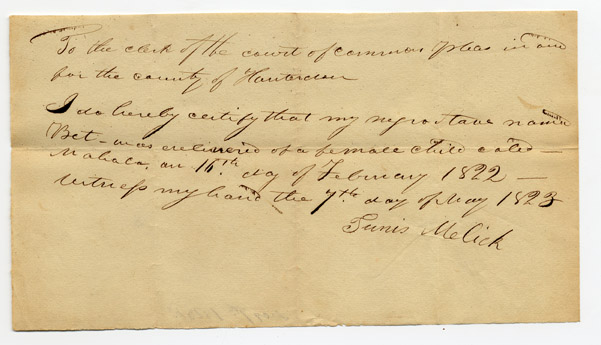 To the clerk of the court of common pleas in and
for the county of Hunterdon
I do hereby certify that my negro slave named
Bet - was delivered of a female child caled -
Mahala, on 16th day of February 1822 -
Witness my hand the 7th day of May 1823
Tunis Melick